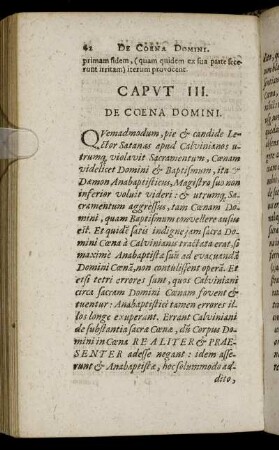 62 DE COENA DOMINI.
primam fidem, (quam quidem ex sua parte fece-
runt irritam) iterum provocent.
CAPVT III.
DE COENA DOMINI.
QVemadmodum, pie & candide Le-
ctor Satanas apud Calvinianos u-
trumq; violavit Sacramentum, Cœnam
videlicet Domini & Baptismum, ita &
Dæmon Anabaptisticus, Magistro suo non
inferior voluit videri: & utrumq; Sa-
cramentum aggressus, tam Cœnam Do-
mini, quam Baptismum convellere ausus
est. Et quidē satis indigne jam sacra Do-
mini Cœna à Calvinianis tractata erat, si
maximè Anabaptistæ suū ad evacuandā
Domini Cœnā, non contulissent operā. Et
etsi tetri errores sunt, quos Calviniani
circa sacram Domini Cœnam fovent &
tuentur: Anabaptistici tamen errores il-
los longe exuperant. Errant Calviniani
de substantia sacræ Cœnæ, dū Corpus Do-
mini in Cœna REALITER & PRAE-
SENTER adesse negant: idem asse-
runt & Anabaptistæ, hoc solummodo ad-
dito,